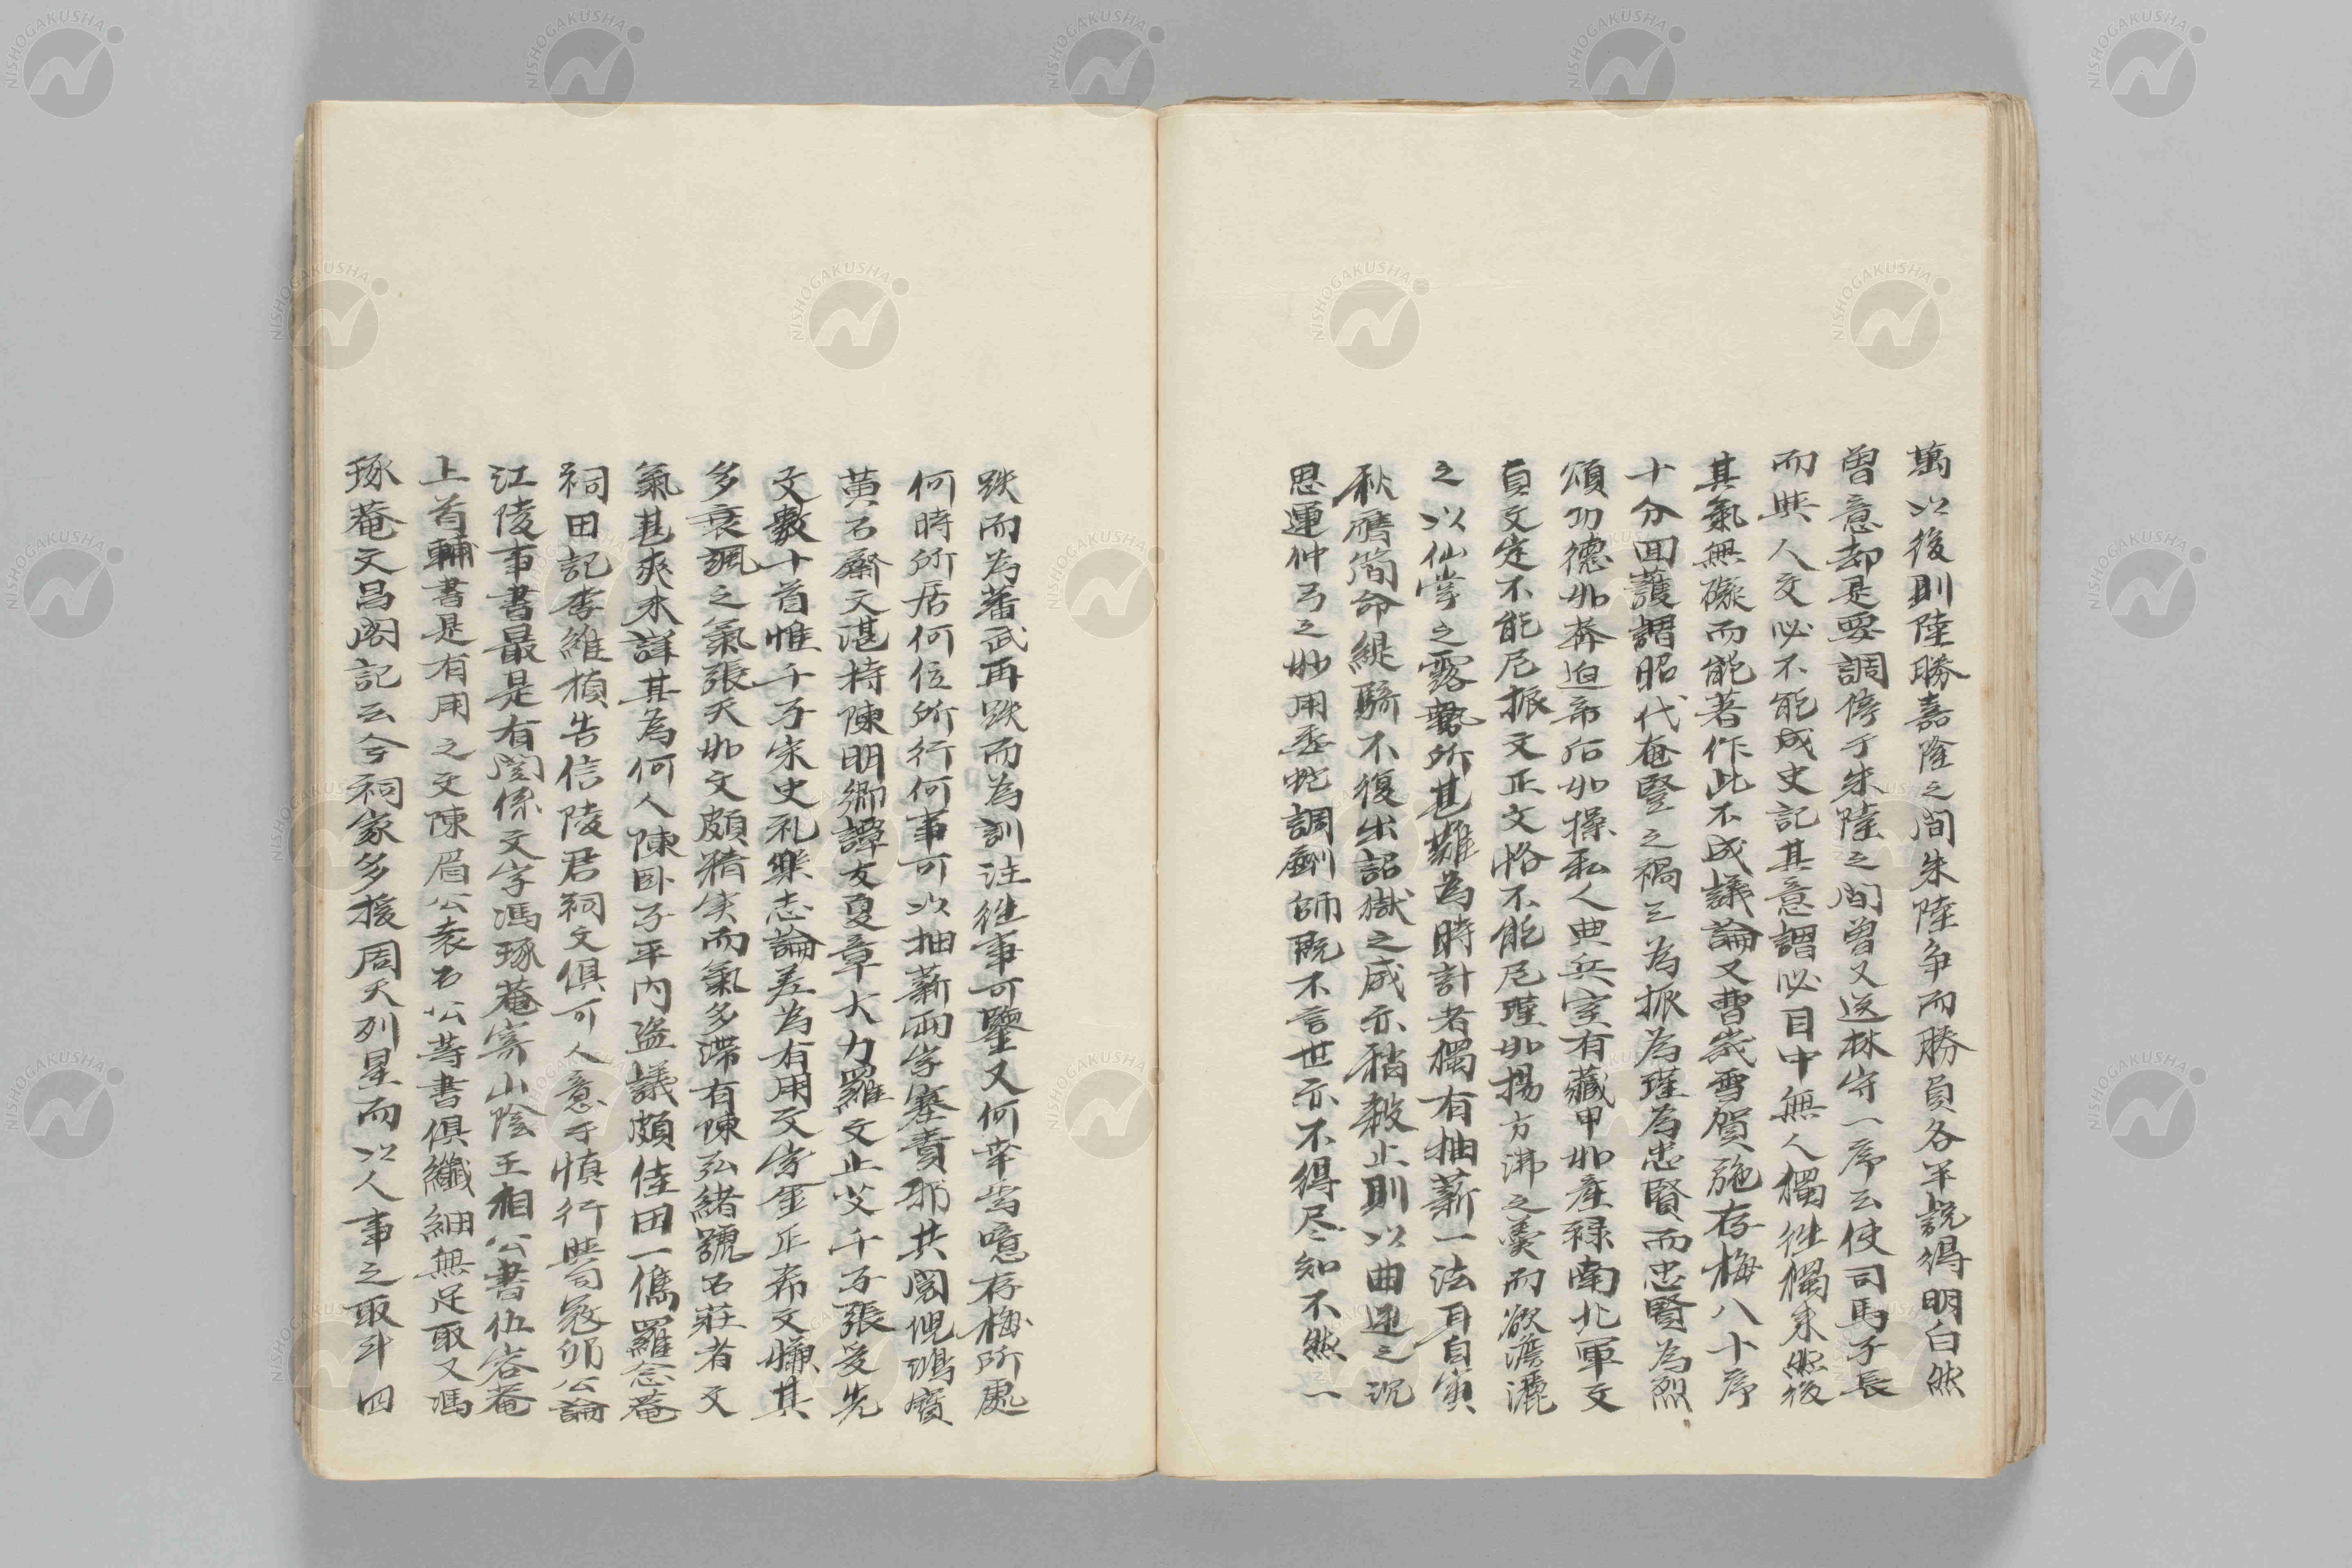 萬以後則陸勝嘉隆之間朱陸争而勝負各半説得明白然
曽意却是要調停于朱陸之間曽又送林守一序云使司馬子長
而與人交必不能成史記其意謂必目中無人獨徃獨来然後
其氣無礙而能著作此不成議論又曹峩雪賀施存梅八十序
十分回護謂昭代奄竪之禍三為振為瑾為忠賢而忠賢為烈
頌功德如莽迫帝后如操私人典兵室有藏甲如産禄南北軍文
貞文定不能尼振文正文恪不能尼瑾如揚方沸之羹而欲澹灑
之以仙掌之露勢所甚難為時計者獨有抽薪一法耳自寅
秋膺簡命緹騎不復出詔獄之威示稍殺止則以曲逆之沉
思運仲弓之妙用委蛇調劑師既不言世示不得尽知不然一
跌而為蕃武再跌而為訓注徃事可鑒又何幸焉噫存梅所處
何時所居何位所行何事可以抽薪兩字塞責邪共閲倪鴻寳
黄石齋文湛持陳明卿譚友夏章大力羅文止艾千子張受先
文數十首惟千子宋史礼樂志論差為有用文字金正希文慊其
多衰颯之氣張天如文頗精実而氣多滞有陳弘緒號石莊者文
氣甚爽未詳其為何人陳卧子平内盗議頗佳田一儁羅念菴
祠田記李維楨告信陵君祠文俱可人意于慎行與司冦邱公論
江陵事書最是有関係文字馮琢菴寄山陰王相公書伍容菴
上首輔書是有用之文陳眉公袁石公等書俱纖細無足取又馮
琢菴文昌閣記云今祠家多援周天列星而以人事之取斗四